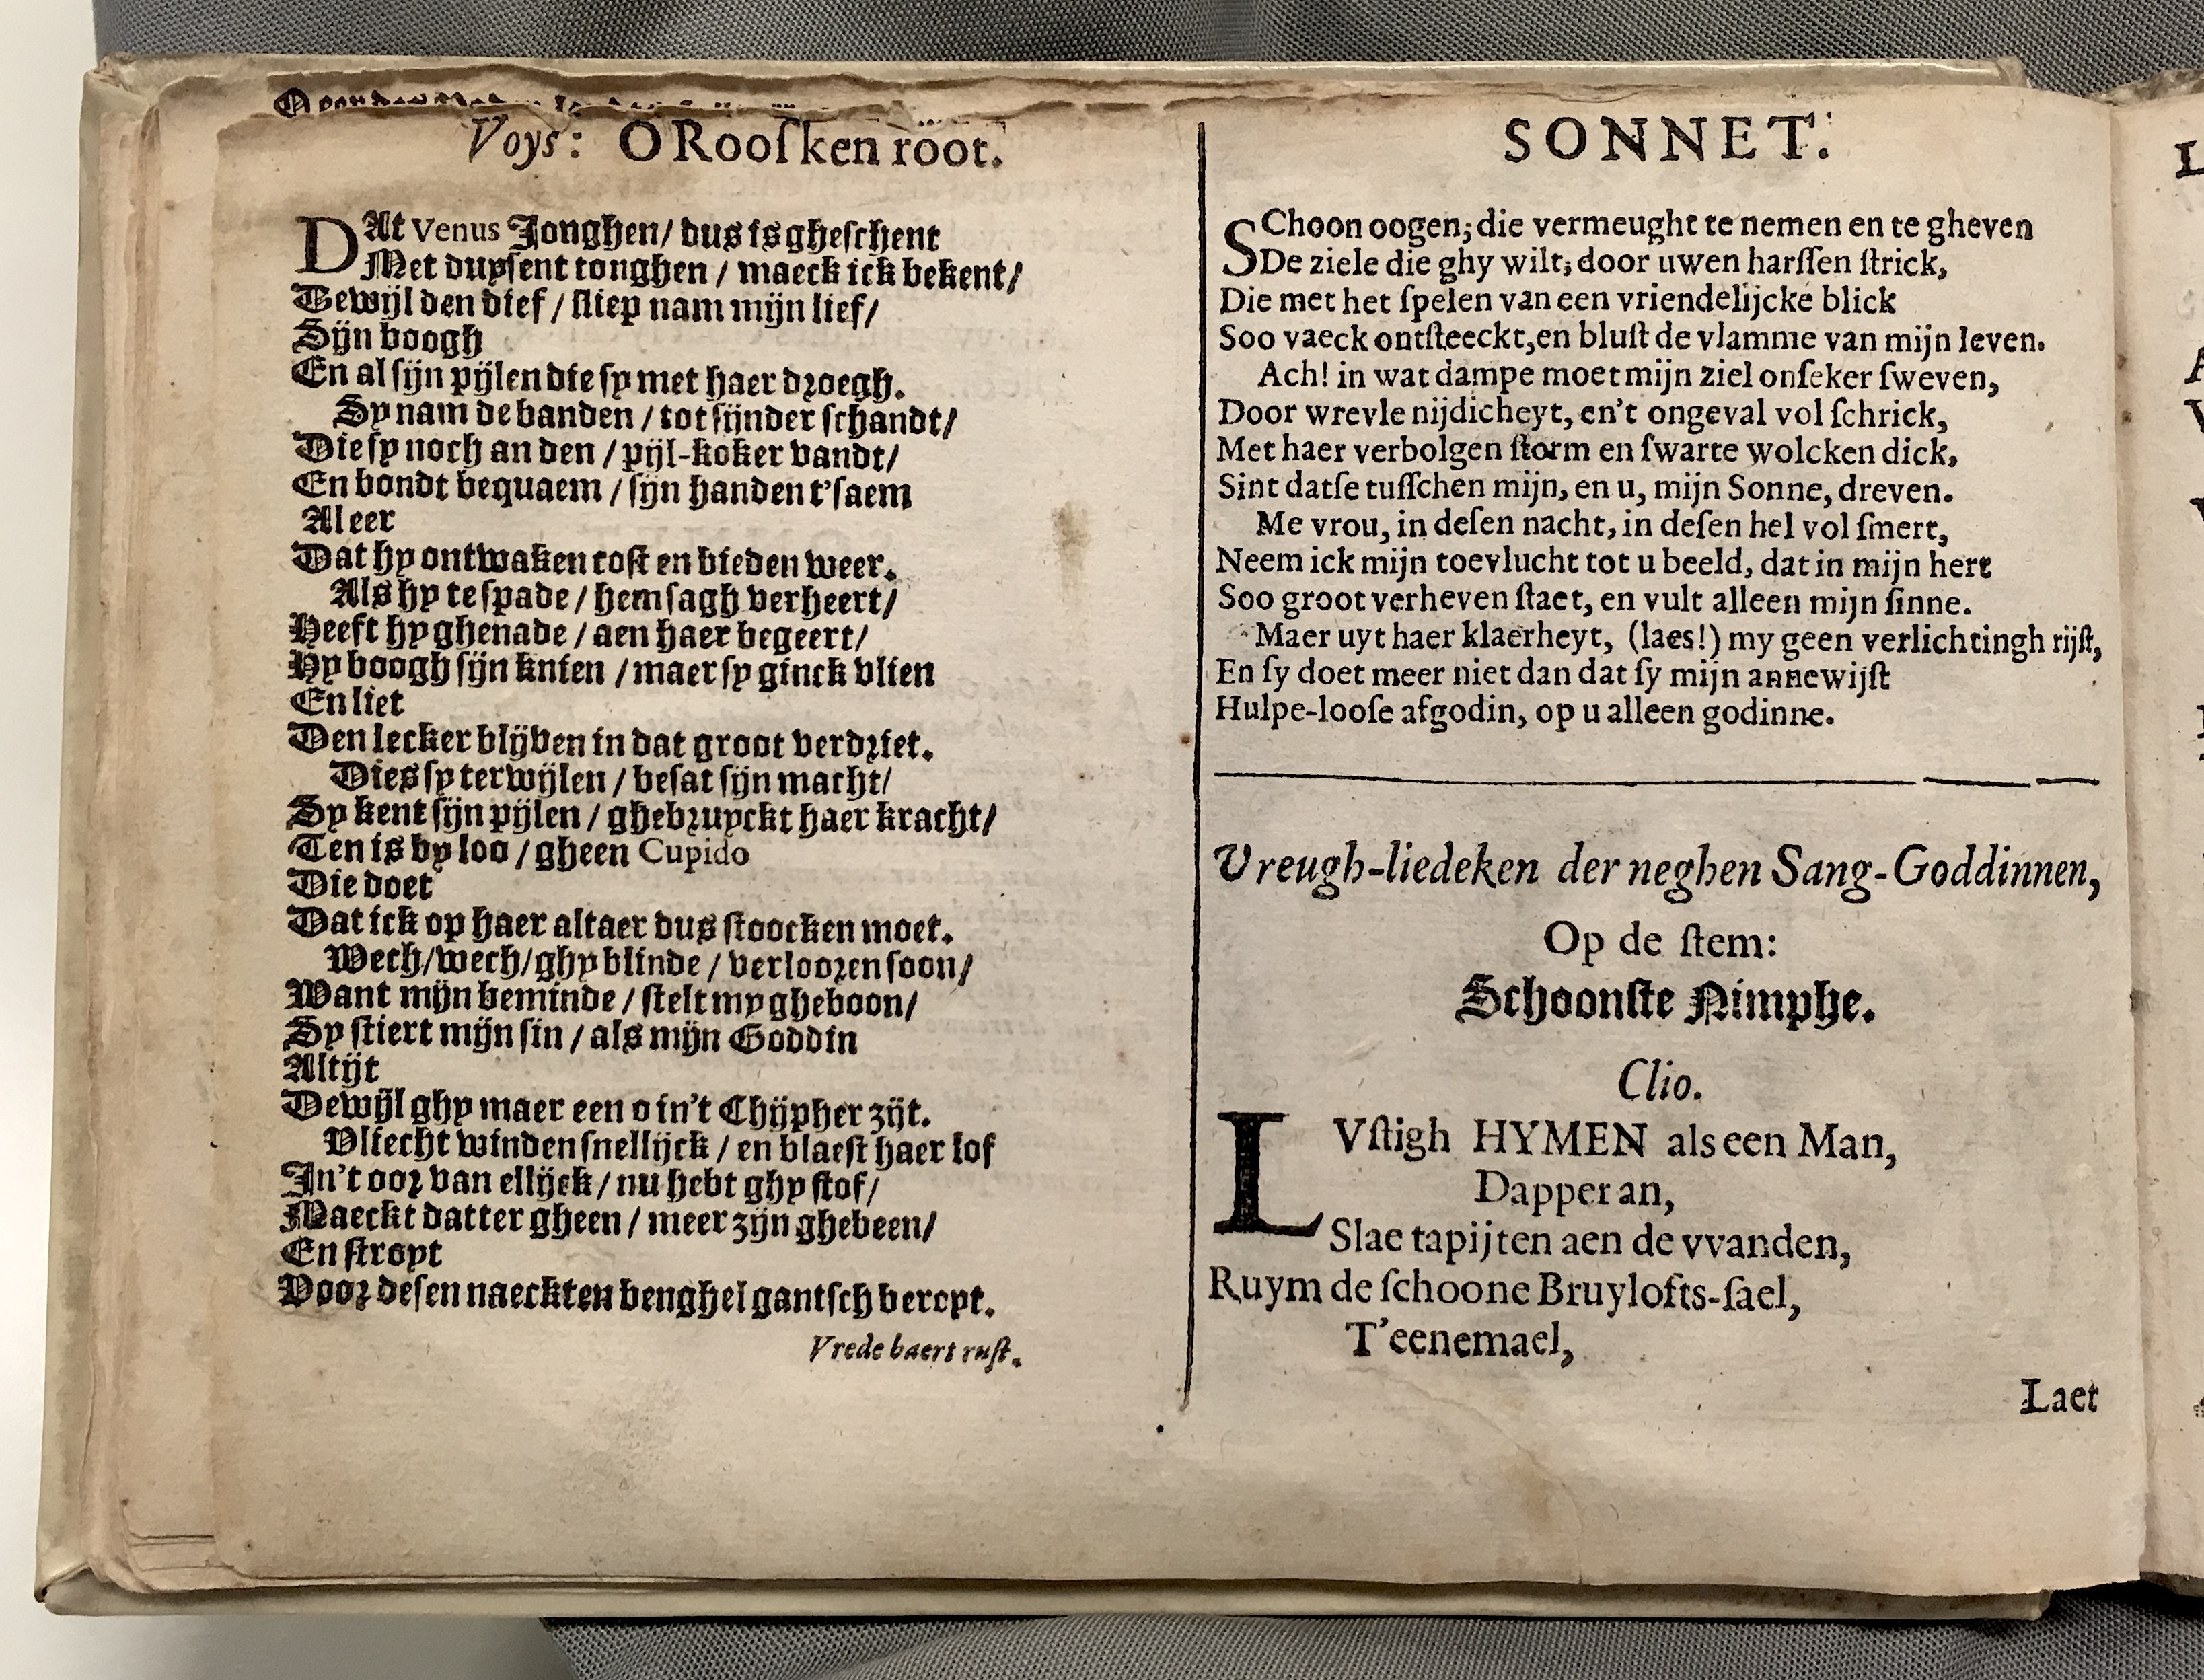 Voys: O Rooſken root.
DAt Venus Jonghen/ dus is gheſchent
Met duyſent tonghen / maeck ick bekent/
Tewijl den dief / ſliep nam mijn lief/
Sijn boogh
En al ſijn pijlen die ſy met haer dꝛoegh.
Sy nam de banden / tot ſijnder ſchandt/
Die ſy noch an den / pijl-koker vandt/
En bondt bequaem / ſijn handen t'ſaem
Al eer
Dat hy ontwaken coſt en bieden weer.
Als hy te ſpade / hem ſagh verheert/
Heeft hy ghenade / aen haer begeert/
Hy boogh ſijn knien / maer ſy ginck vlien
En liet
Den lecker blijven in dat groot verdꝛiet.
Dies ſy terwijlen / beſat ſijn macht/
Sy kent ſijn pijlen / ghebꝛuyckt haer kracht/
Ten is by loo / gheen Cupido
Die doet
Dat ick op haer altaer dus ſtoocken moet.
Wech/wech/ghy blinde / verlooꝛen ſoon/
Want mijn beminde / ſtelt my gheboon/
Sy ſtiert mijn ſin / als mijn Goddin
Altijt
Dewijl ghy maer een o in't Chijpher zijt.
Vliecht winden ſnellijck / en blaeſt haer lof
In't ooꝛ van ellijck / nu hebt ghy ſtof/
Maeckt datter gheen / meer zijn ghebeen/
En ſtroyt
Vooꝛ deſen naeckten benghel gantſch beroyt.
Vrede baert ruſt.
SONNET.
SChoon oogen; die vermeught te nemen en te gheven
De ziele die ghy wilt; door uwen harſſen ſtrick,
Die met het ſpelen van een vriendelijcke blick
Soo vaeck ontſteeckt, en bluſt de vlamme van mijn leven.
Ach! in wat dampe moet mijn ziel onſeker ſweven,
Door wrevle nijdicheyt, en't ongeval vol ſchrick,
Met haer verbolgen ſtorm en ſwarte wolcken dick,
Sint datſe tuſſchen mijn, en u, mijn Sonne, dreven.
Me vrou, in deſen nacht, in deſen hel vol ſmert,
Neem ick mijn toevlucht tot u beeld, dat in mijn hert
Soo groot verheven ſtaet, en vult alleen mijn ſinne.
Maer uyt haer klaerheyt, (laes!) my geen verlichtingh rijſt,
En ſy doet meer niet dan dat ſy mijn annewijſt
Hulpe-looſe afgodin, op u alleen godinne.
Vreugh-liedeken der neghen Sang-Goddinnen,
Op de ſtem:
Schoonſte Nimphe.
Clio.
LVſtigh HYMEN als een Man,
Dapper an,
Slae tapijten aen de vvanden,
Ruym de ſchoone Bruylofts-ſael,
T'eenemael,
Laet